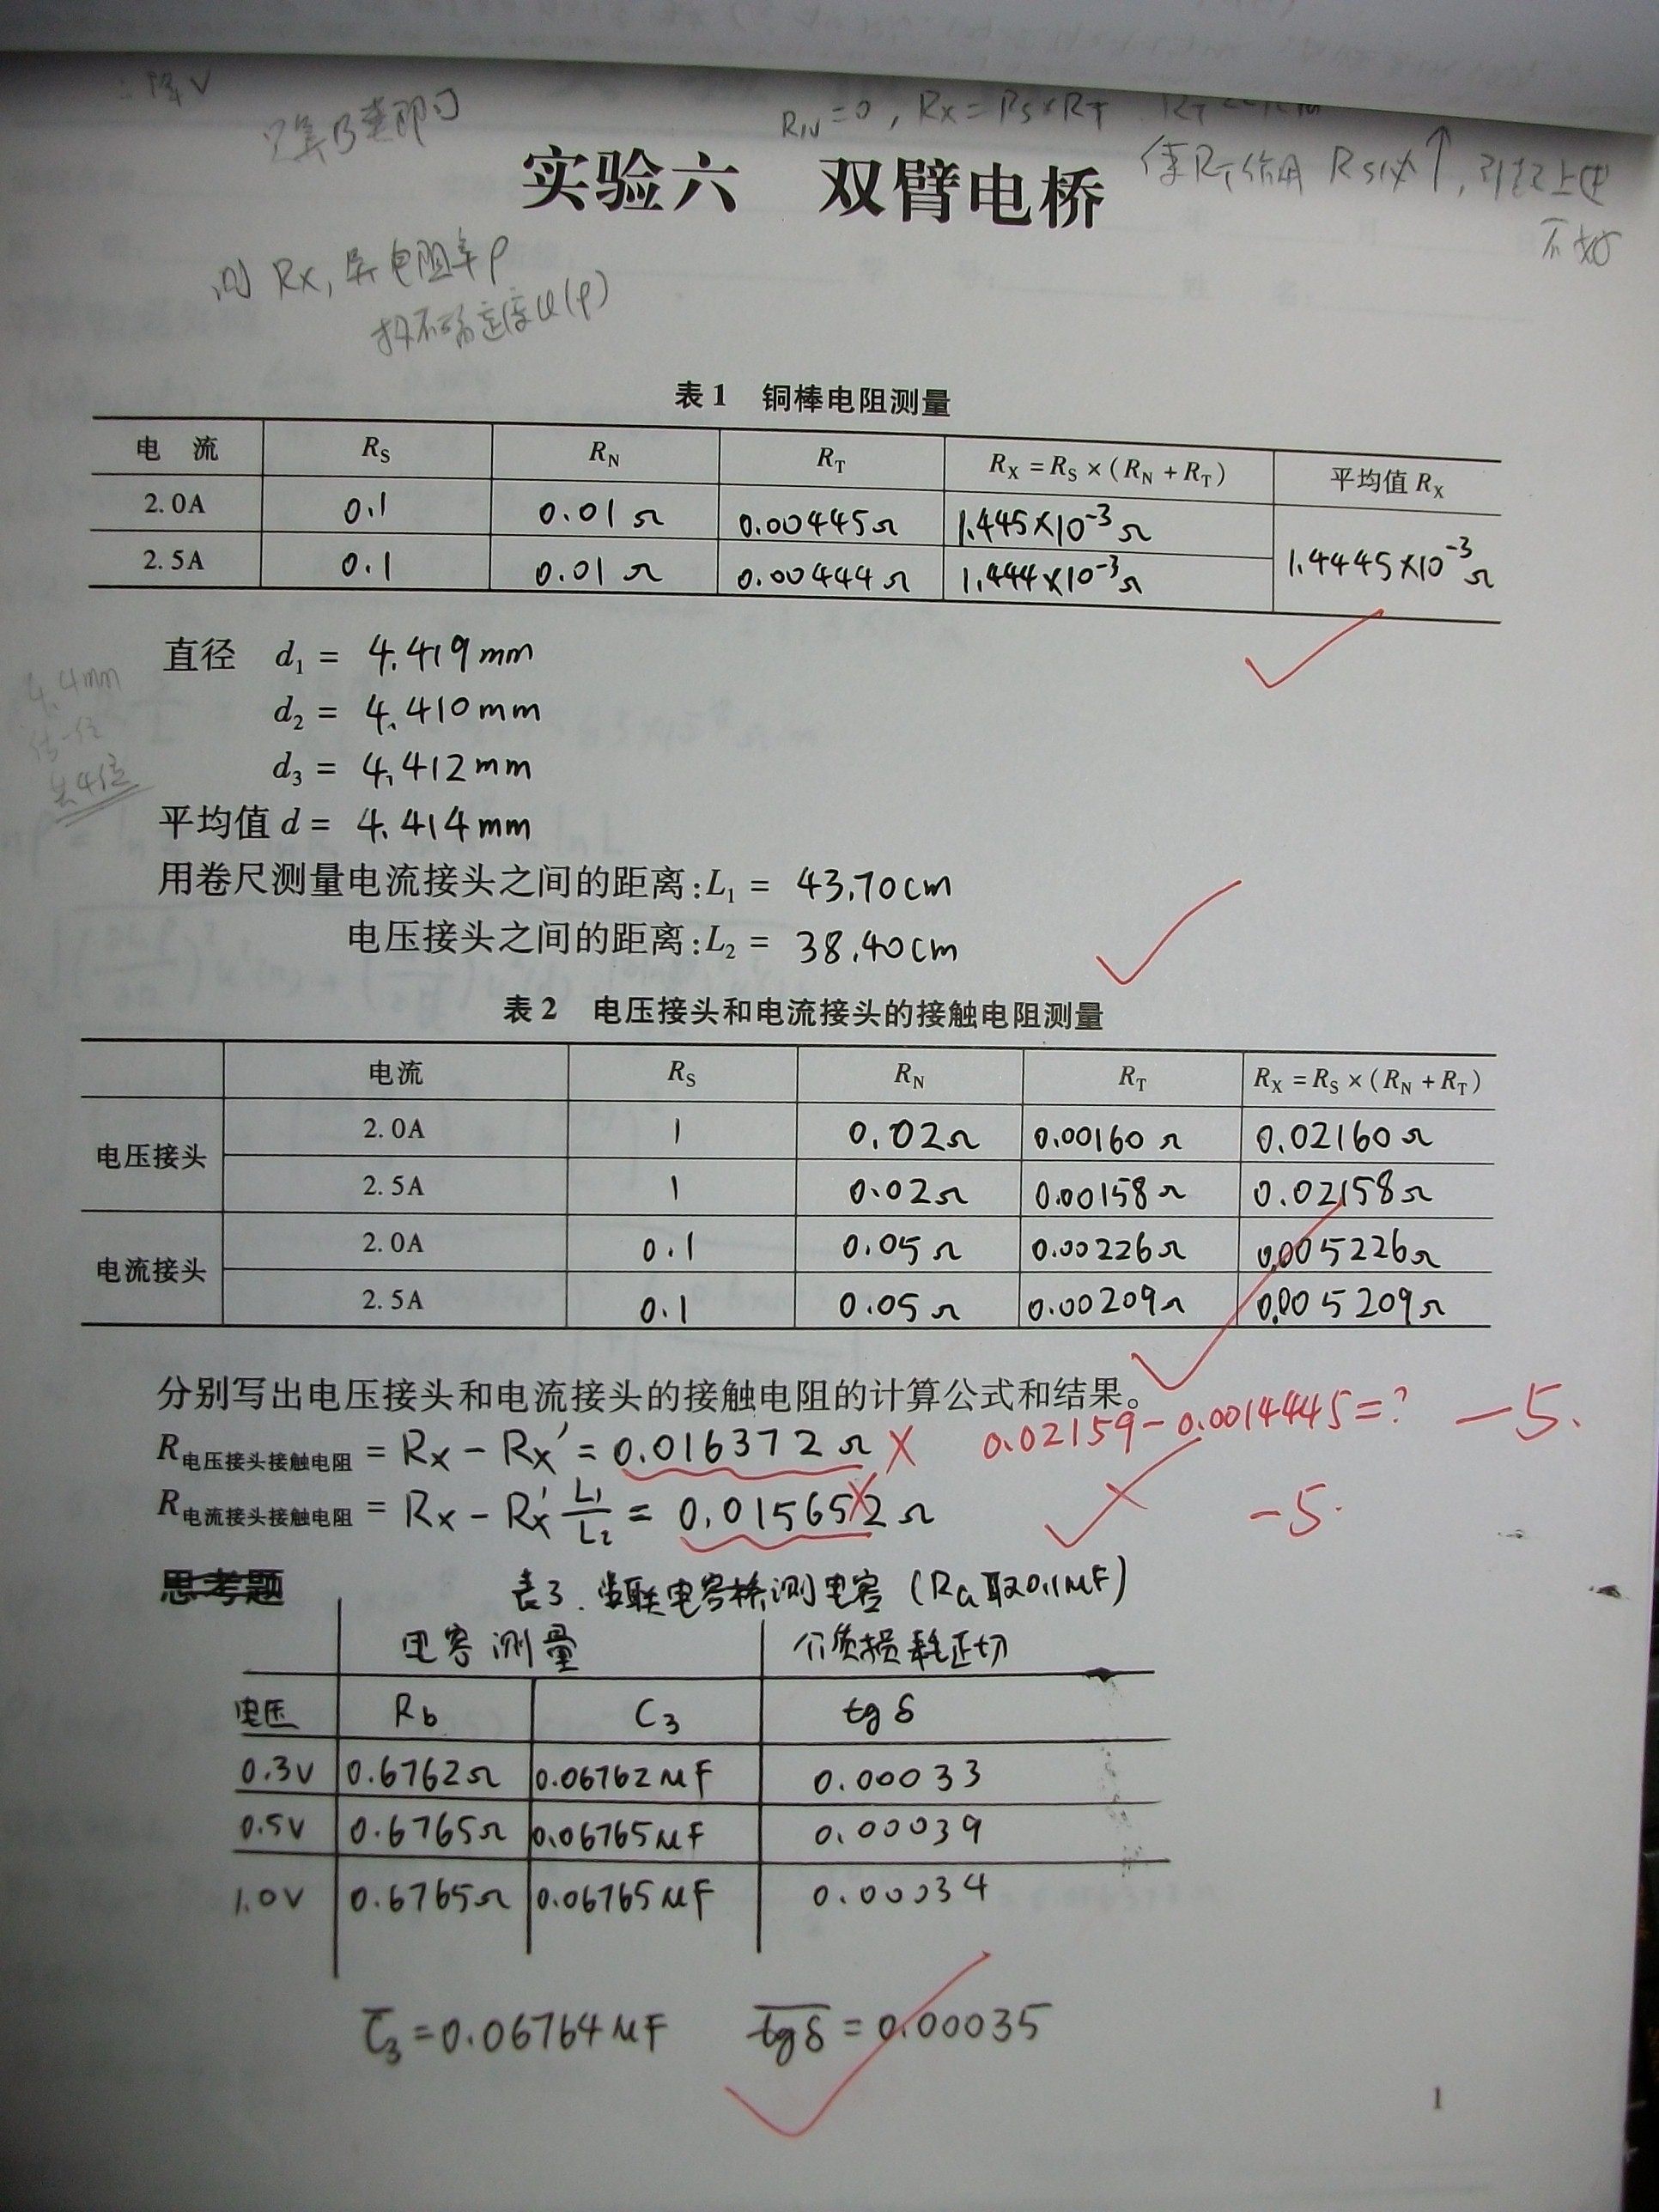 ∴ 降V
只算B类即可
R_N=0, Rx=Rs×R_T
实验六 双臂电桥
使R_T作用 ↑, 引起上
不好
测 Rx, 算电阻率ρ
求不确定度u(ρ)
表1 铜棒电阻测量
电 流 R_S R_N R_T R_X = R_S × (R_N + R_T) 平均值 R_X
2.0A 0.1 0.01Ω 0.00445Ω 1.445×10⁻³Ω 1.4445×10⁻³Ω
2.5A 0.1 0.01Ω 0.00444Ω 1.444×10⁻³Ω
直径 d₁ = 4.419mm
d₂ = 4.410mm
d₃ = 4.412mm
4.4mm
估一位
共4位
平均值 d = 4.414mm
用卷尺测量电流接头之间的距离:L₁ = 43.70cm
电压接头之间的距离:L₂ = 38.40cm
表2 电压接头和电流接头的接触电阻测量
电流 R_S R_N R_T R_X = R_S × (R_N + R_T)
电压接头 2.0A 1 0.02Ω 0.00160Ω 0.02160Ω
2.5A 1 0.02Ω 0.00158Ω 0.02158Ω
电流接头 2.0A 0.1 0.05Ω 0.00226Ω 0.005226Ω
2.5A 0.1 0.05Ω 0.00209Ω 0.005209Ω
分别写出电压接头和电流接头的接触电阻的计算公式和结果。
R电压接头接触电阻 = Rx - Rx' = 0.016372Ω × 0.02159-0.0014445=? -5.
R电流接头接触电阻 = Rx - Rx' L₁/L₂ = 0.015652Ω × -5.
思考题 表3. 串联电容桥测电容 (Ra取0.1μF)
电容测量 介质损耗正切
电压 R_b C₃ tgδ
0.3V 0.6762Ω 0.06762μF 0.00033
0.5V 0.6765Ω 0.06765μF 0.00039
1.0V 0.6765Ω 0.06765μF 0.00034
C̄₃=0.06764μF t̅g̅δ̅=0.00035
1